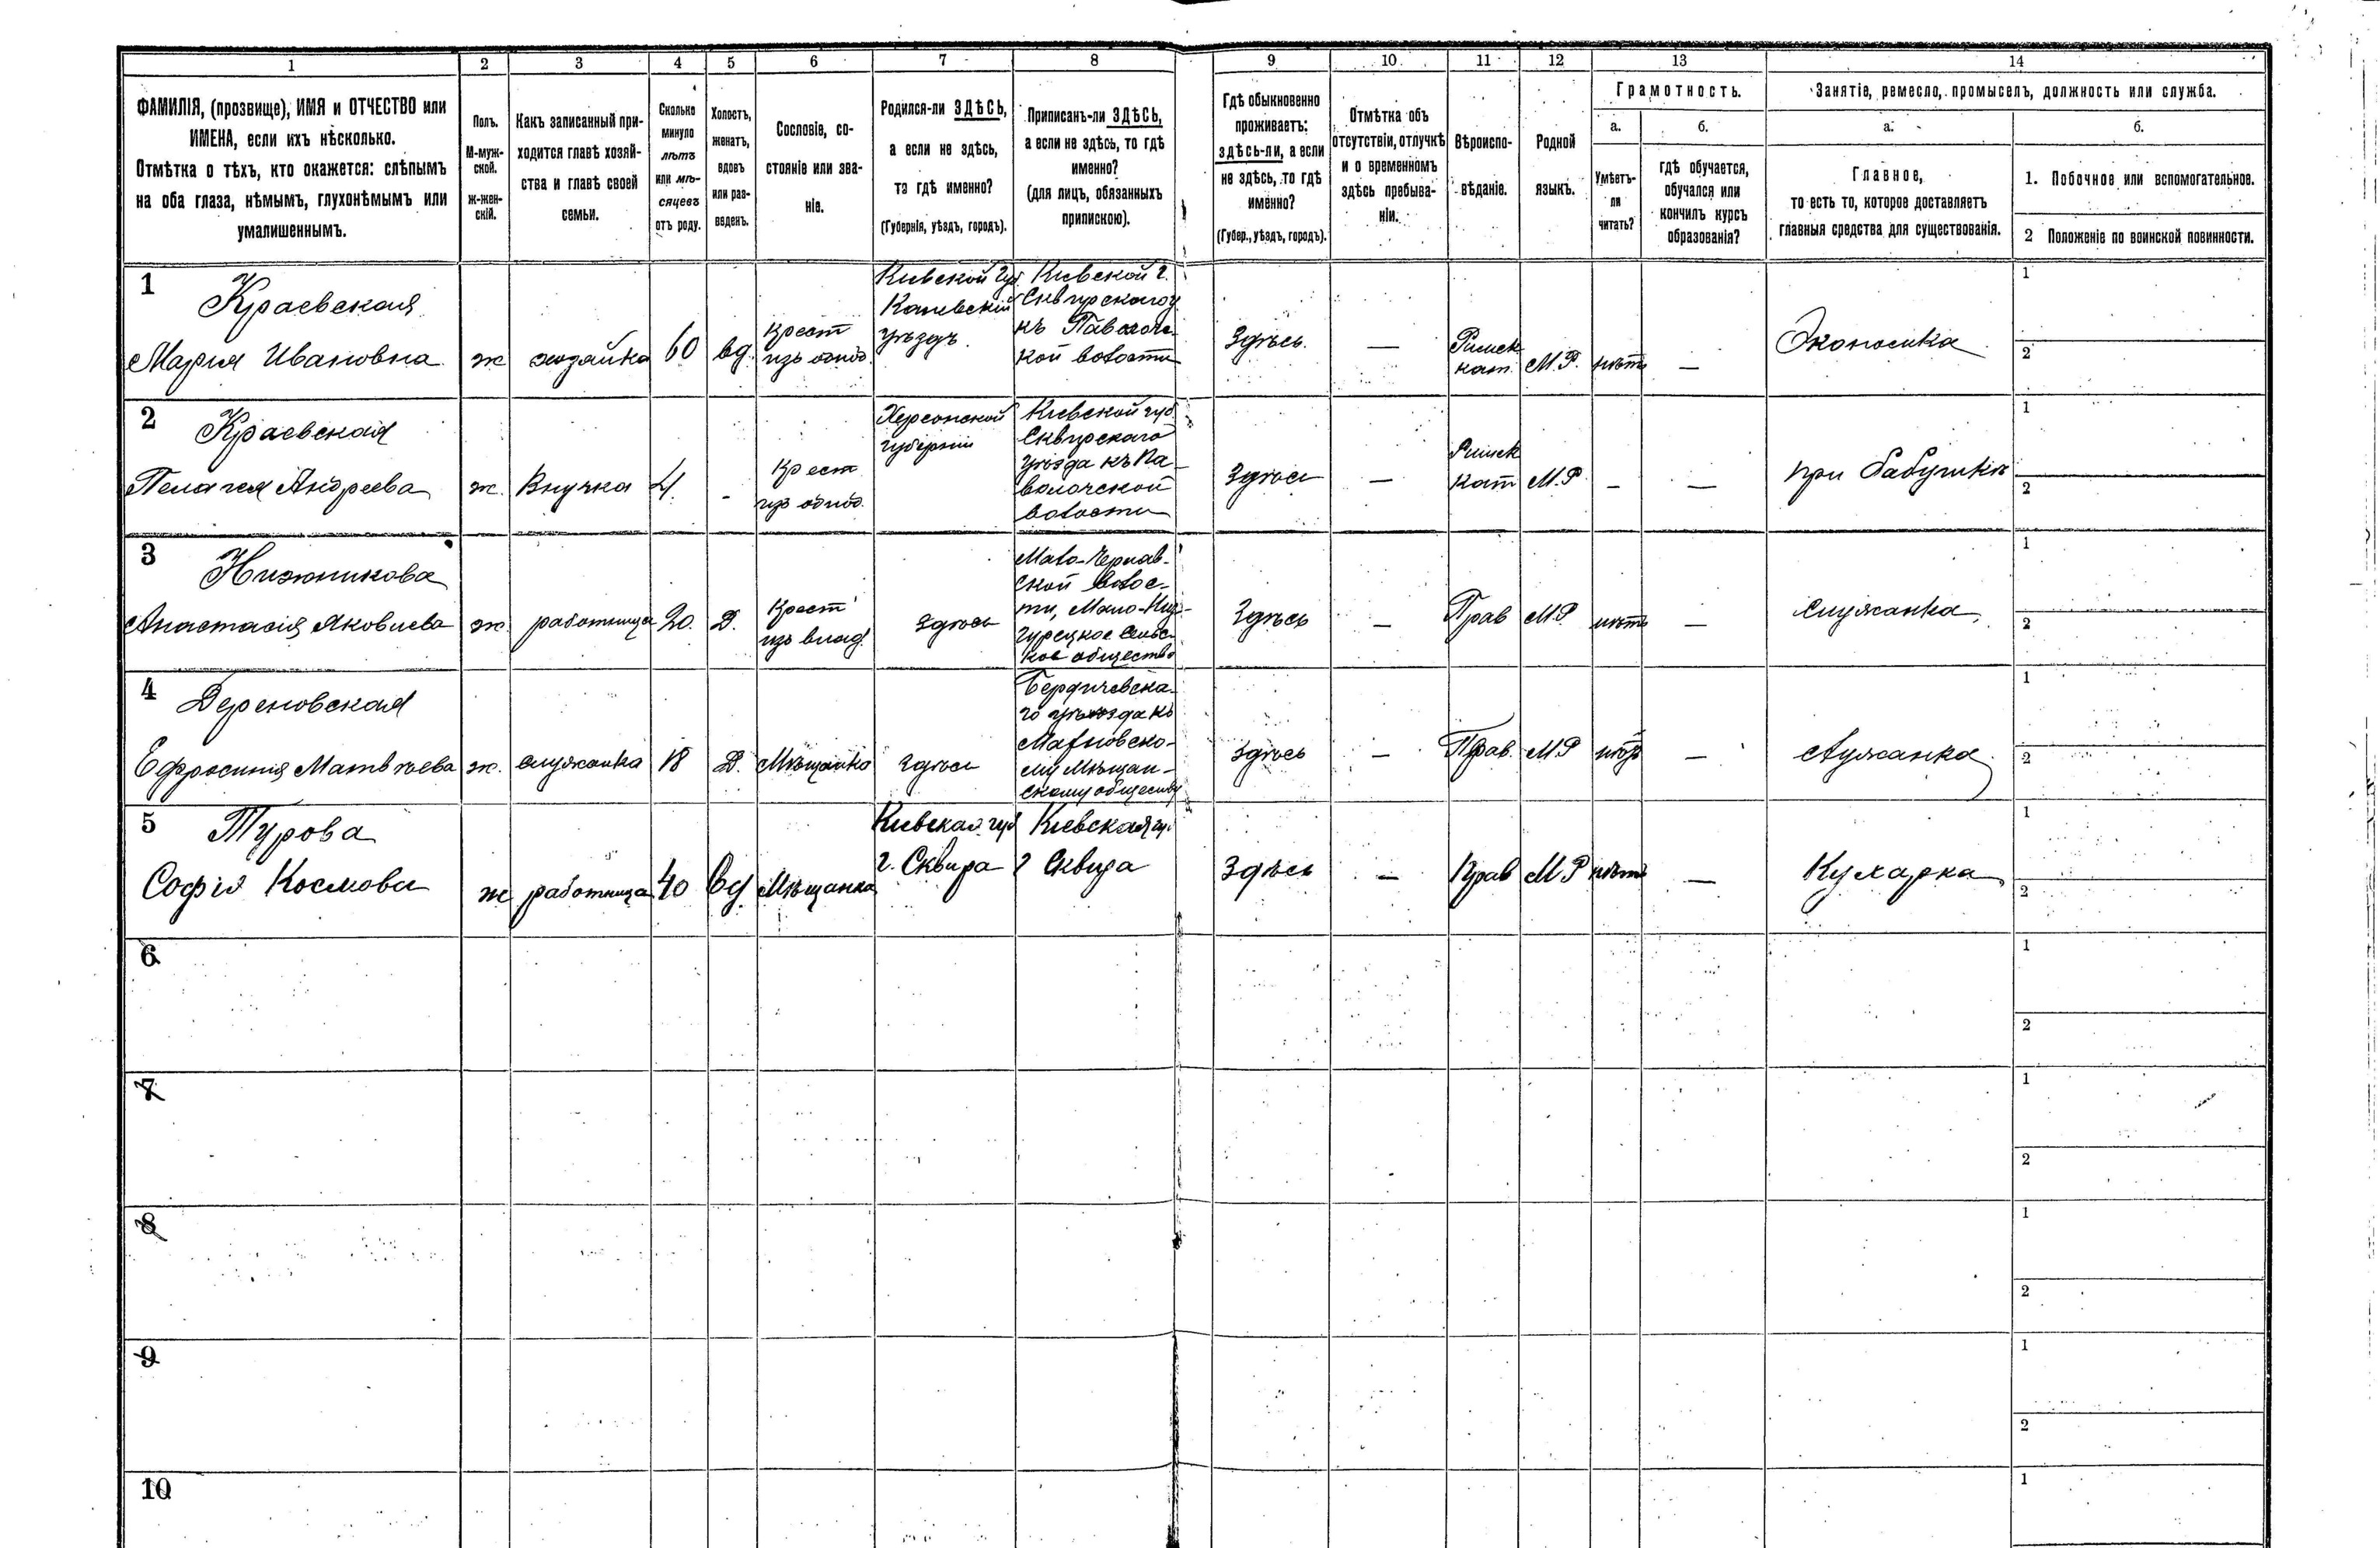 1 2 3 4 5 6 7 8 9 10 11 12 13 14
ФАМИЛІЯ, (прозвище), ИМЯ и ОТЧЕСТВО или
ИМЕНА, если ихъ нѣсколько.
Отмѣтка о тѣхъ, кто окажется: слѣпымъ
на оба глаза, нѣмымъ, глухонѣмымъ или
умалишеннымъ.
Полъ.
М-муж-
ской.
ж-жен-
скій.
Какъ записанный при-
ходится главѣ хозяй-
ства и главѣ своей
семьи.
Сколько
минуло
лѣтъ
или мѣ-
сяцевъ
отъ роду.
Холостъ,
женатъ,
вдовъ
или раз-
веденъ.
Сословіе, со-
стояніе или зва-
ніе.
Родился-ли ЗДѢСЬ,
а если не здѣсь,
то гдѣ именно?
(Губернія, уѣздъ, городъ).
Приписанъ-ли ЗДѢСЬ,
а если не здѣсь, то гдѣ
именно?
(для лицъ, обязанныхъ
припискою).
Гдѣ обыкновенно
проживаетъ:
здѣсь-ли, а если
не здѣсь, то гдѣ
именно?
(Губер., уѣздъ, городъ).
Отмѣтка объ
отсутствіи, отлучкѣ
и о временномъ
здѣсь пребыва-
ніи.
Вѣроиспо-
вѣданіе.
Родной
языкъ.
Грамотность.
а.
Умѣетъ-
ли
читать?
б.
гдѣ обучается,
обучался или
кончилъ курсъ
образованія?
Занятіе, ремесло, промыселъ, должность или служба.
а.
Главное,
то есть то, которое доставляетъ
главныя средства для существованія.
б.
1. Побочное или вспомогательное.
2 Положеніе по воинской повинности.
1
Краевская
Мария Ивановна
ж
хозяйка
60
вд.
крест
изъ однод.
Киевской Губ.
Каневский
уѣздъ.
Киевской г.
Сквирскаго у
къ Паволоч-
кой волости
Здѣсь.
—
Римск
кат.
М.Р.
нѣтъ
—
Экономка
1
2
2
Краевская
Пелагея Андреева
ж.
Внучка
4.
-
Крест
изъ однод.
Херсонской
губерніи
Киевской губ
Сквирскаго
уѣзда къ Па-
волочской
волости
Здѣсь
—
Римск
кат
М.Р
—
—
при бабушкѣ
1
2
3
Нижникова
Анастасія Яковлева
ж.
работница
20.
Д.
Крест
изъ влад.
Здѣсь
Мало-Чернав-
ской волос-
ти,
общество
Здѣсь
—
Прав
М.Р
нѣтъ
—
служанка
1
2
4
Дереновская
Ефросинія Матвѣева
ж.
служанка
18
Д.
Мѣщанка
Здѣсь
Бердичевска-
го уѣзда къ
Махновско-
му Мѣщан-
скому обществу
Здѣсь
—
Прав.
М.Р
—
служанка
1
2
5
Турова
Софія Космова
ж
работница
40
вд
Мѣщанка
Киевская губ
г. Сквира
Киевская гу.
г Сквира
Здѣсь
—
Прав
М Р
нѣтъ
—
Кухарка
1
2
6
1
2
7
1
2
8
1
2
9
1
2
10
1